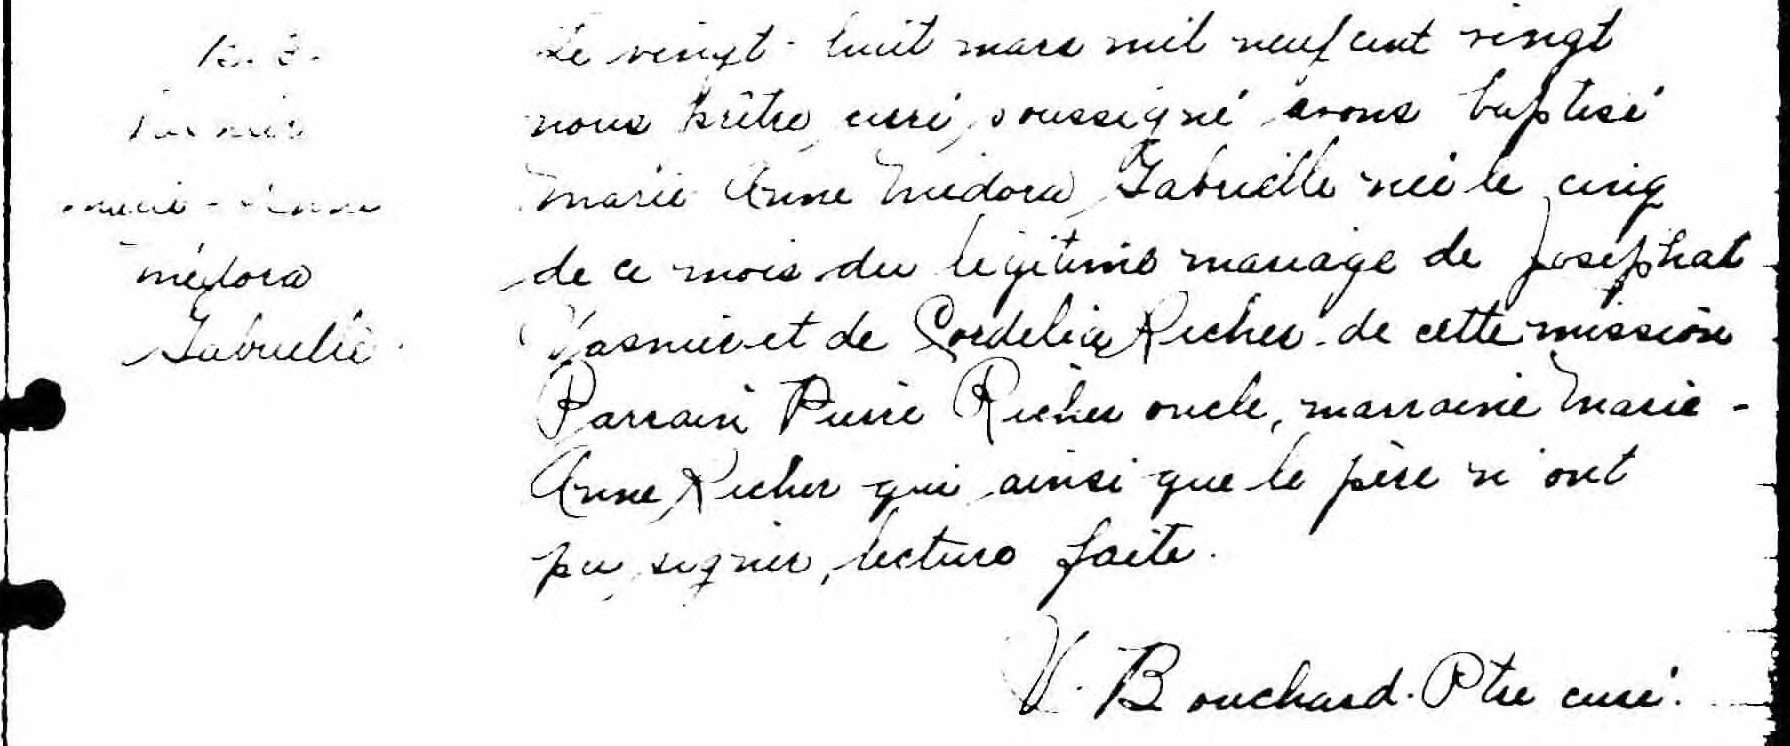 B. 3.
marie-Anne
médora
Gabrielle.
Le vingt-huit mars mil neuf cent vingt
nous prêtre, curé, soussigné avons baptisé
Marie Anne Médora Gabrielle née le cinq
de ce mois du légitime mariage de Josephat
et de Cordelia Richer de cette mission
Parrain Pierre Richer oncle, marraine Marie-
Anne Richer qui ainsi que le père n'ont
pu signer, lecture faite.
V. Bouchard. Ptre curé.